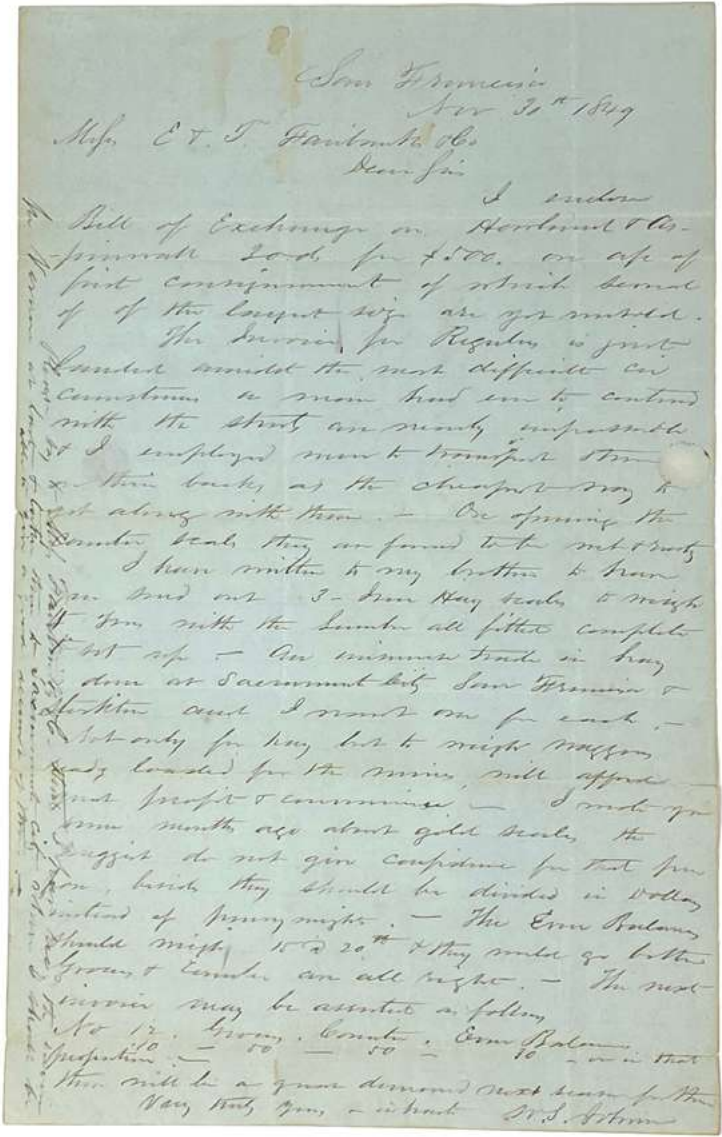 San Francisco
Nov 30th 1849
Messrs E & T. Fairbanks & Co
Dear Sir
I enclose
Bill of Exchange on Howland & As-
-pinwall for $500. on a/c of
first consignment of which several
of of the largest size are yet unsold.
The Invoice for Regulus is just
landed amidst the most difficult cir
cumstances a man had ever to contend
with the streets are nearly impassable
& I employed men to transport them
on their backs as the cheapest way to
get along with them. — On opening the
Counter scales they are found to be wet & rusty
I have written to my brother to have
you send out 3 - Hay scales to weigh
Tons with the Lumber all fitted complete
to set up — An immense trade in hay
is done at Sacramento City San Francisco &
Stockton and I want one for each. —
Not only for hay but to weigh waggons
ready loaded for the mines will afford
great profit & convenience — I wrote you
some months ago about gold scales the
Druggist do not give confidence for that pur
pose, beside they should be divided in Dollars
instead of pennyweights. — The Even Balance
should weigh 15 @ 20 & they would go better
Grocers & Counter are all right. — The next
invoice may be assorted as follows
No 12. Grocers. Counter. Even Balance
10 — 50 — 50 — 10 — or in that
proportion. —
there will be a great demand next season for them
Very truly yours in haste